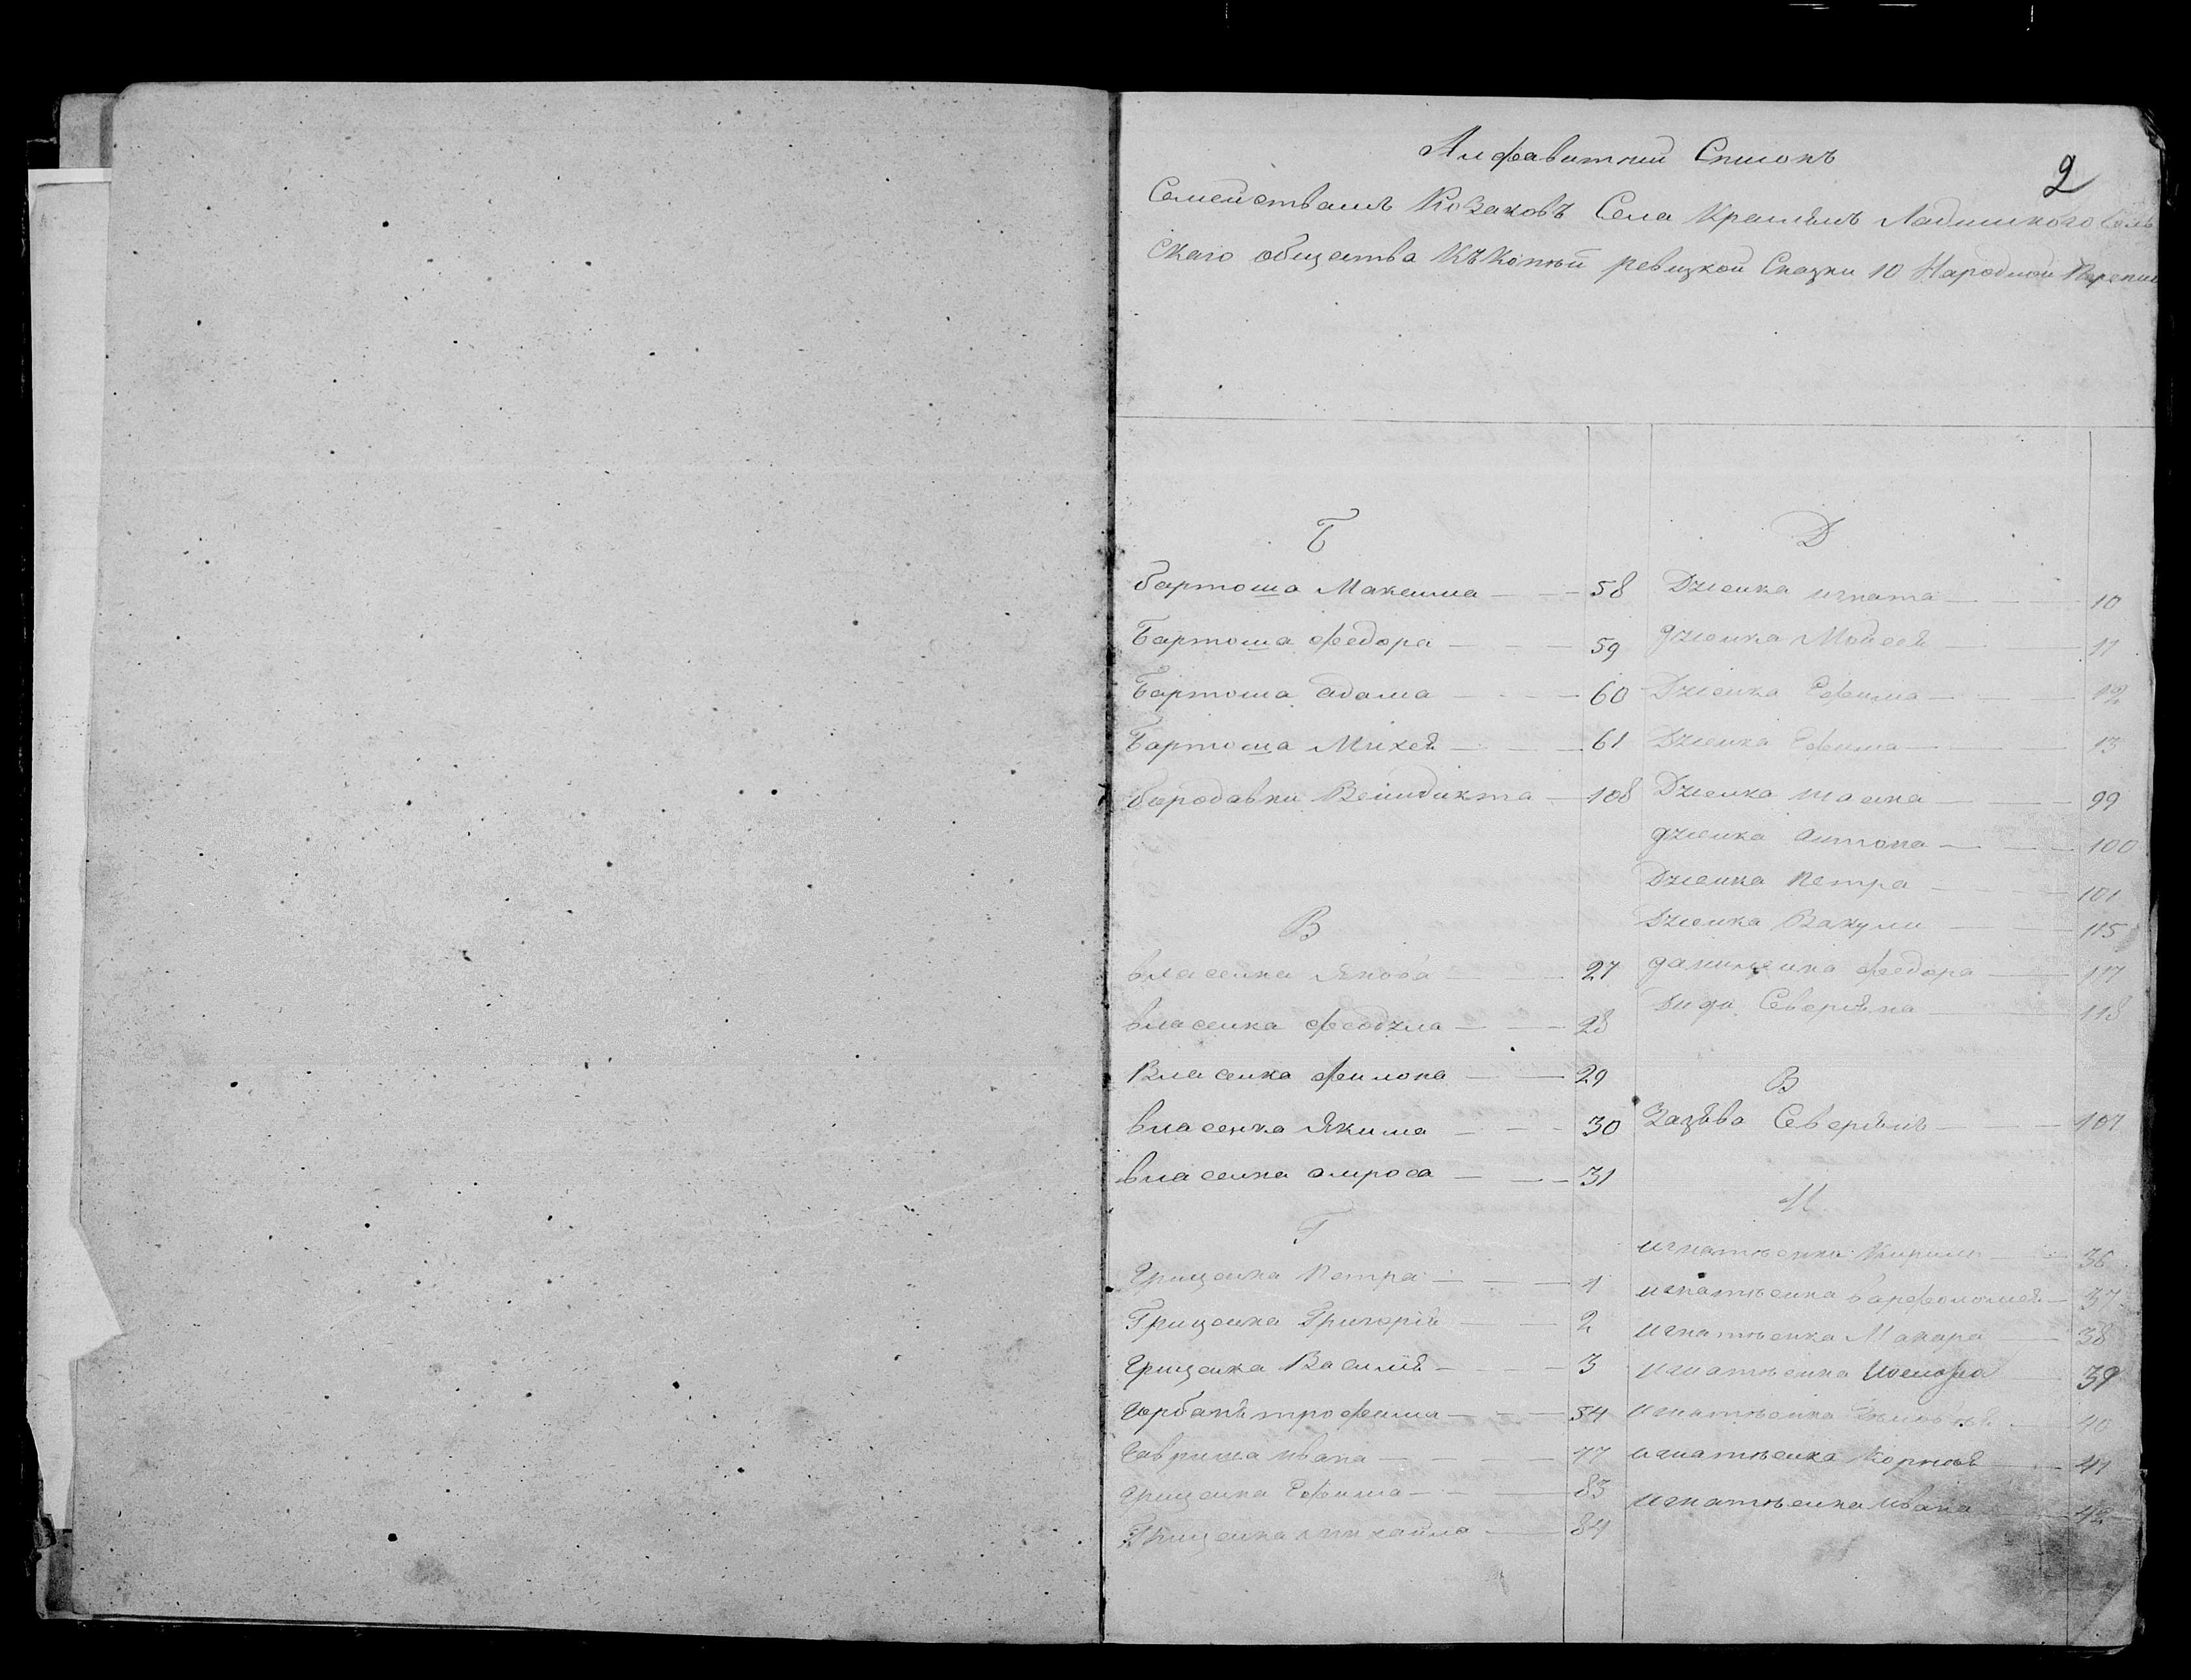 Алфавитний Списокъ
2
Семействамъ Козаковъ Села Ладинского Сель
скаго общества Къ Копіи ревизкой Сказки 10 Народной Перепис
Б
бартоша Максима 58
Бартоша Федора 59
Бартоша адама 60
Бартоша Михея 61
бородавки Венидикта 108
В
власенка Якова 27
власенка 28
Власенка Филона 29
власенка Якима 30
власенка амроса 31
Г
Грищенка Петра 1
Грищенка Григорія 2
Грищенка Василія 3
Горбаня трофима 54
Гавриша ивана 77
Грищенка Ефима 83
Грищенка михайла 84
Д
Дзюенка игната 10
дзюенка Моисея 11
Дзюенка Ефима 12
Дзюенка Ефима 13
Дзюенка 99
дзюенка антона 100
Дзюенка Петра 101
Дзюенка Вакули 115
данильченка федора 117
Северѣна 118
З
Северѣнъ 107
И
игнатьенка Кирила 36
игнатьенка варфоломея 37
игнатьенка Макара 38
игнатьенка 39
игнатьенка 40
игнатьенка Корнея 41
игнатьенка ивана 42